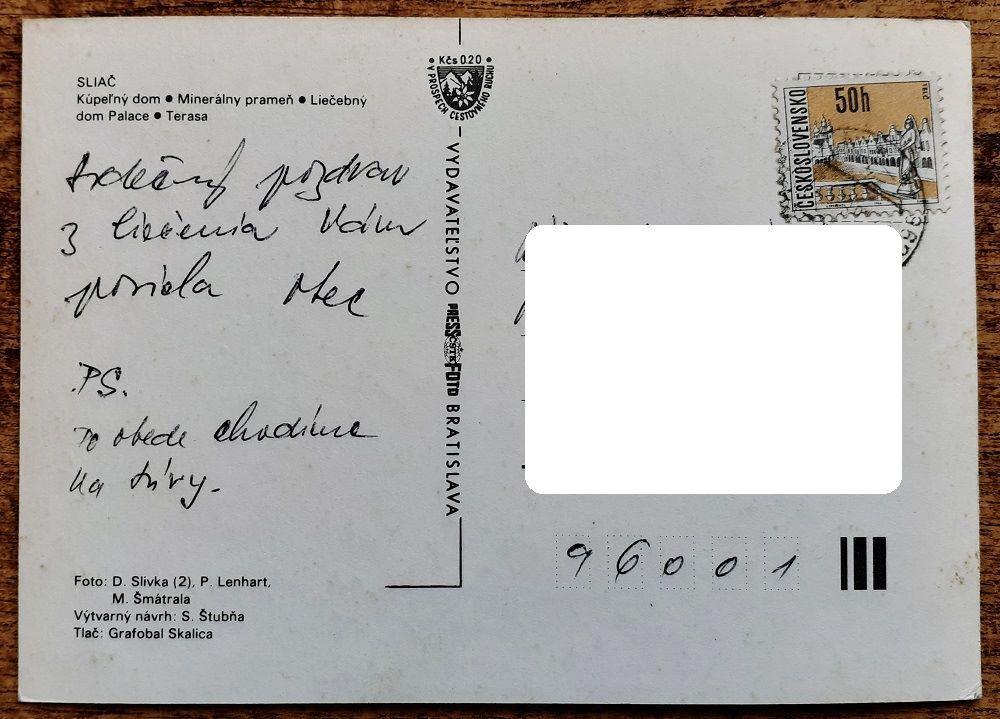 SLIAČ
Kúpeľný dom ● Minerálny prameň ● Liečebný
dom Palace ● Terasa
Srdečný pozdrav
z liečenia Vám
posiela otec
PS.
Po obede chodíme
na túry.
Foto: D. Slivka (2), P. Lenhart,
M. Šmátrala
Výtvarný návrh: S. Štubňa
Tlač: Grafobal Skalica
Kčs 0.20
V PROSPECH CESTOVNÉHO RUCHU
VYDAVATEĽSTVO PRESSFOTO BRATISLAVA
ČSTK
ČESKOSLOVENSKO
50h
TELČ
96001